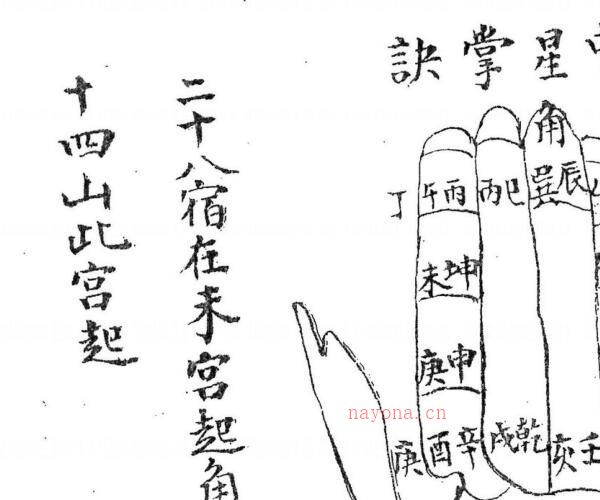 星掌訣
角
辰 巽
巳 丙
丙 午 丁
坤 未
申 庚
壬 亥
乾 戌
辛 酉 庚
二十八宿在未宮起角
十四山此宮起
nayona.cn